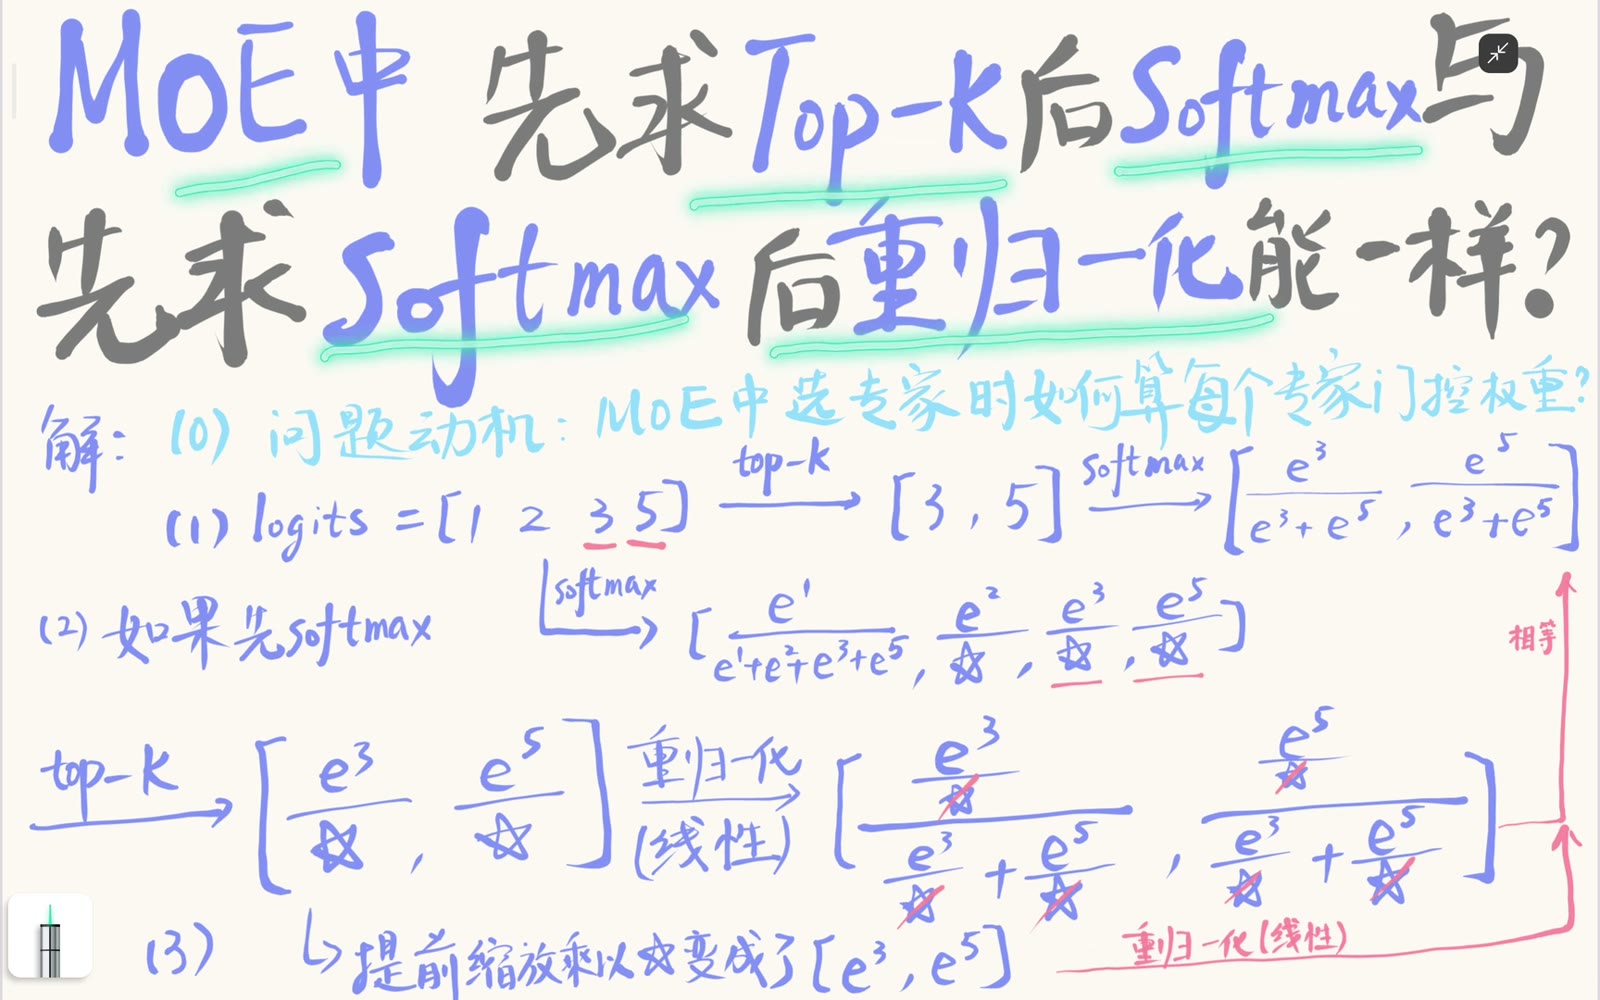 MoE中 先求Top-K后Softmax与
先求Softmax后重归一化能一样?
解: (0) 问题动机: MoE中选专家时如何算每个专家门控权重?
(1) logits = [1 2 3 5] top-k → [3, 5] softmax → [e³/(e³+e⁵), e⁵/(e³+e⁵)]
(2) 如果先softmax softmax → [e¹/(e¹+e²+e³+e⁵), e²/☆, e³/☆, e⁵/☆]
相等
top-K → [e³/☆, e⁵/☆] 重归一化 (线性) → [(e³/☆)/(e³/☆ + e⁵/☆), (e⁵/☆)/(e³/☆ + e⁵/☆)]
(3) ↳ 提前缩放乘以☆变成了[e³, e⁵] 重归一化(线性)